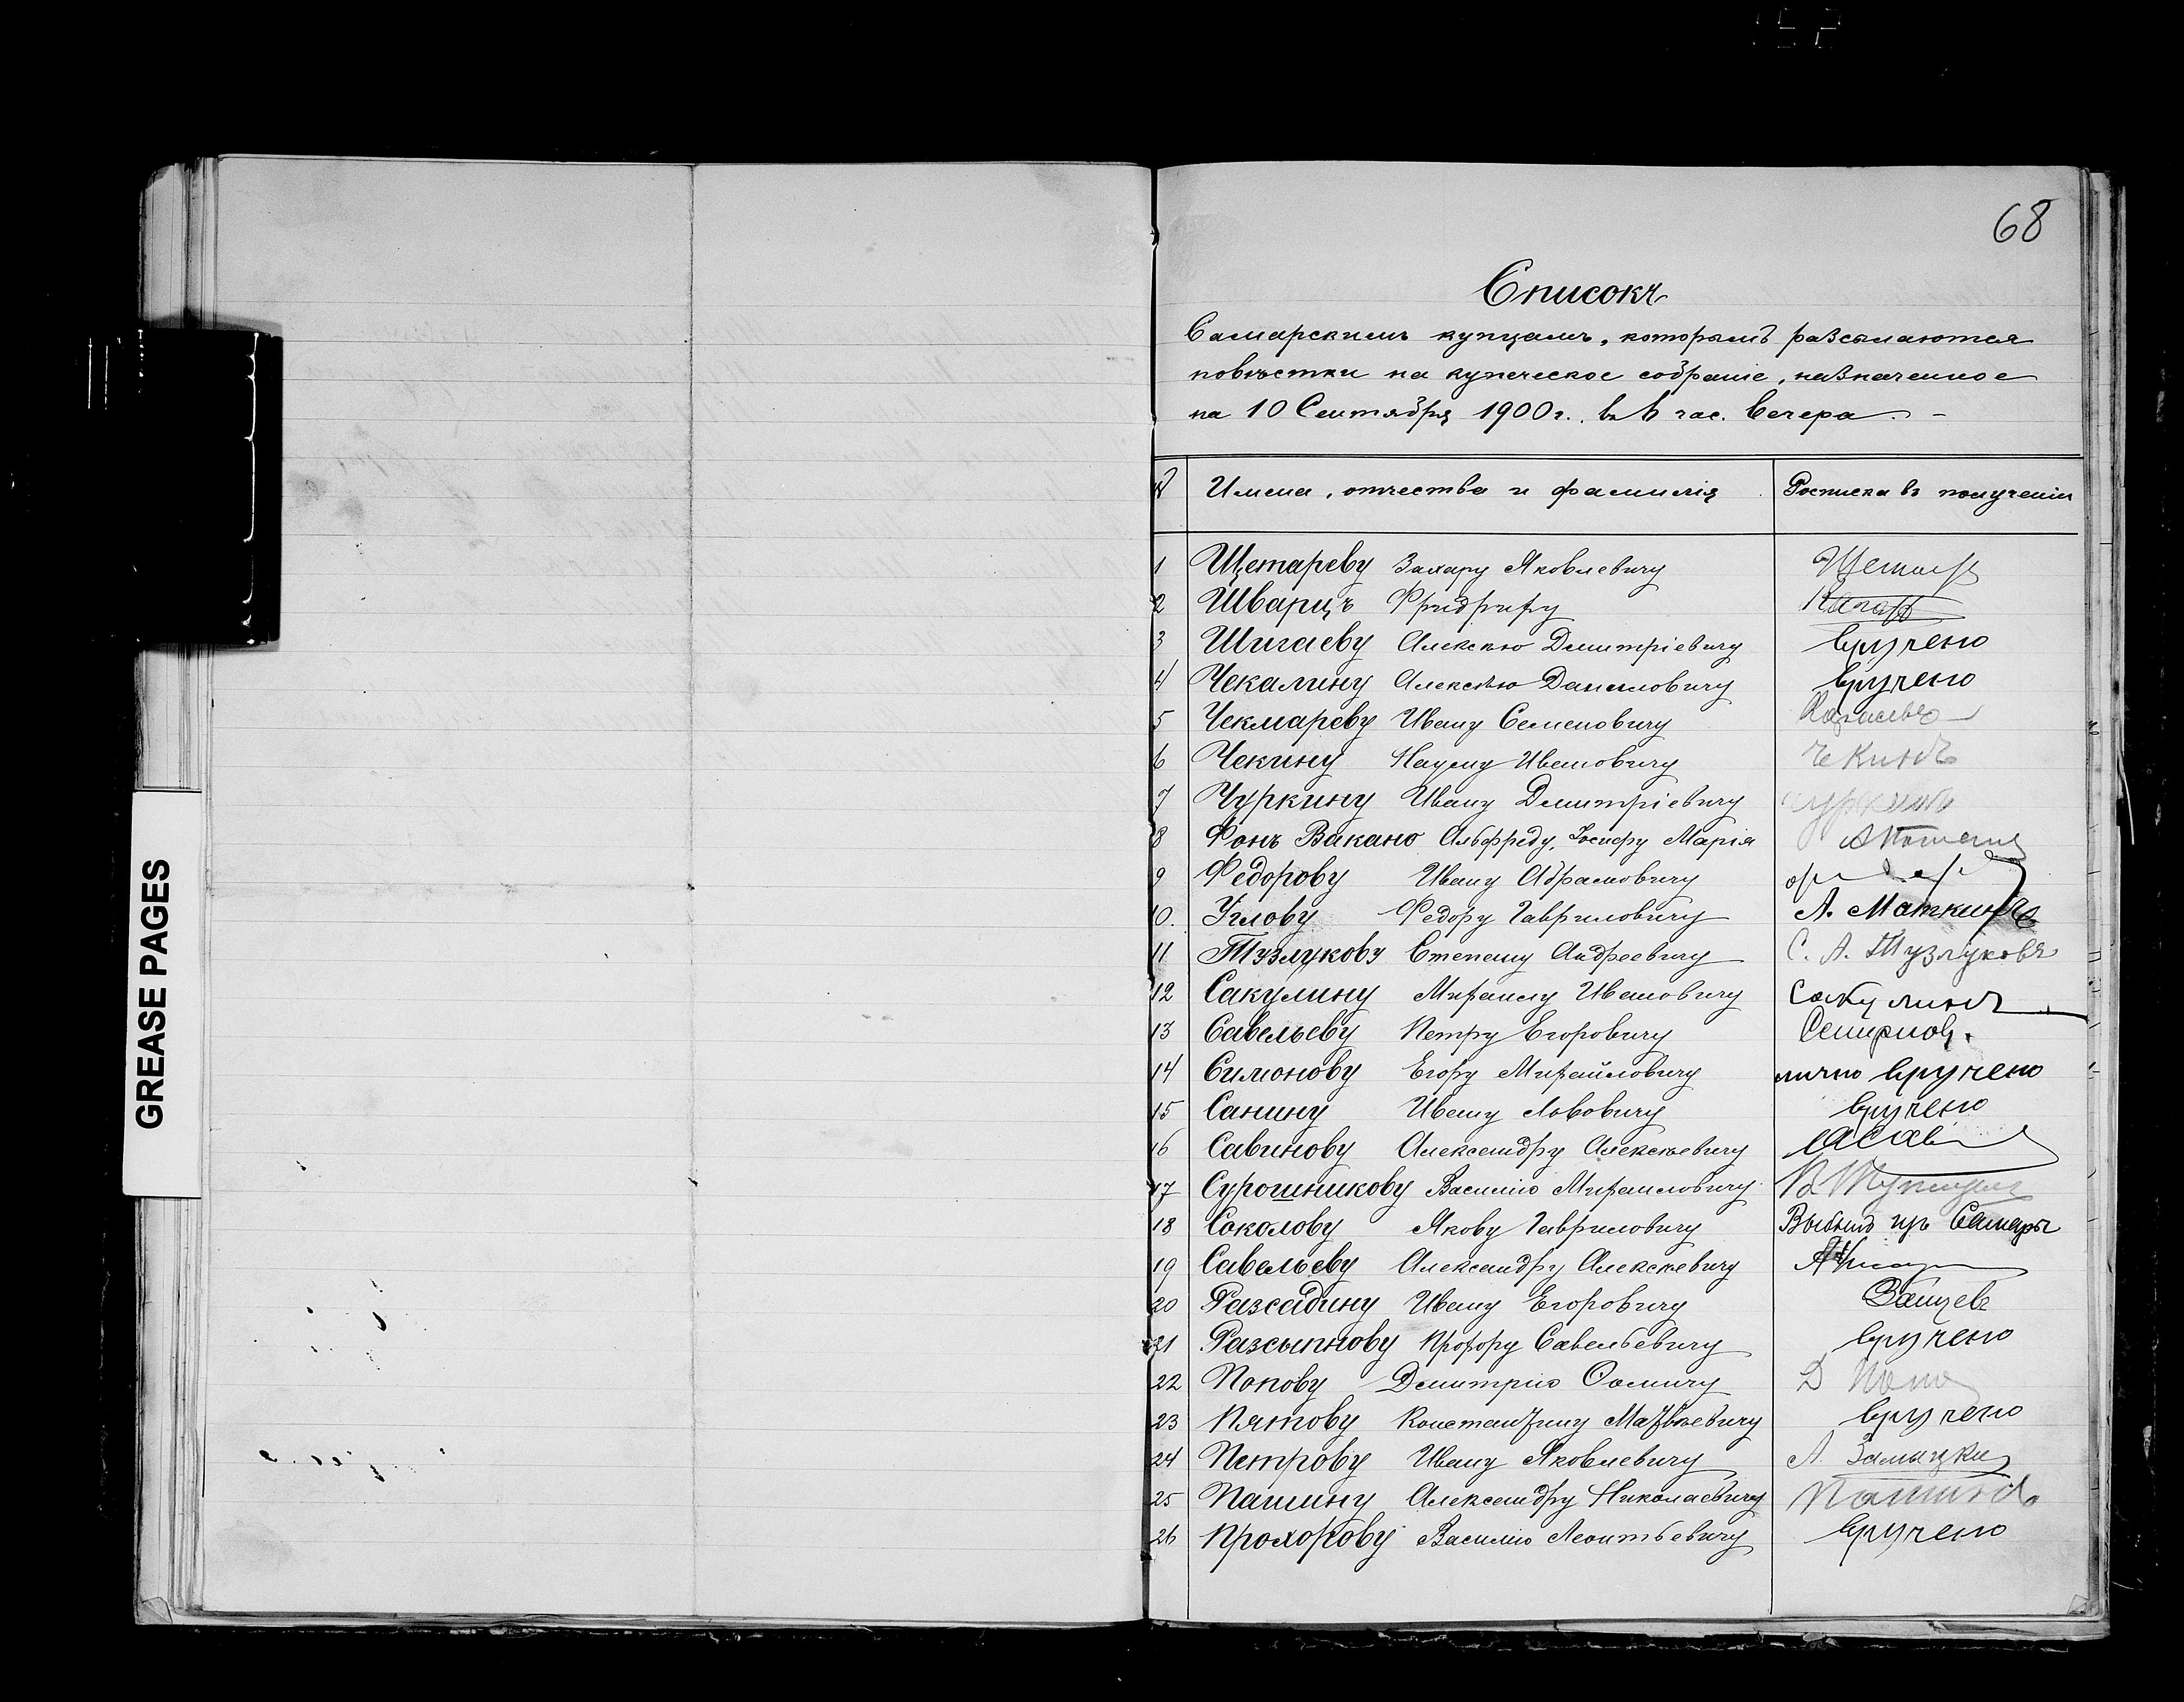 68
Списокъ
Самарскимъ купцамъ, которымъ разсылаются
повѣстки на купеческое собраніе, назначенное
на 10 Сентября 1900 г. въ 6 час. вечера. -
№ Имена, отчества и фамилія Росписка въ полученіи
1 Щетареву Захару Яковлевичу
2 Шварцъ Фридриху
3 Шигаеву Алексѣю Дмитріевичу вручено
4 Чекалину Алексѣю Даниловичу вручено
5 Чекмареву Ивану Семеновичу
6 Чекину Науму Ивановичу чекинъ
7 Чуркину Ивану Дмитріевичу чуркинъ
8 Фонъ Вакано Альфреду, Іосифу Марія
9 Федорову Ивану Абрамовичу
10. Углову Федору Гавриловичу А. Маткинъ
11 Тузлукову Степану Андреевичу С. А. Тузлуковъ
12 Сакулину Михаилу Ивановичу Сакулинъ
13 Савельеву Петру Егоровичу
14 Симонову Егору Михайловичу лично вручено
15 Санину Ивану Львовичу вручено
16 Савинову Александру Алексѣевичу
17 Сурошникову Василію Михаиловичу
18 Соколову Якову Гавриловичу Выбылъ изъ Самары
19 Савельеву Александру Алексѣевичу
20 Разсадину Ивану Егоровичу
21 Разсыпнову Прохору Савельевичу вручено
22 Попову Дмитрію Фомичу Д
23 Пятову Константину Матвѣевичу вручено
24 Петрову Ивану Яковлевичу А.
25 Пашину Александру Николаевичу Пашинъ
26 Прохорову Василію Леонтьевичу вручено
GREASE PAGES